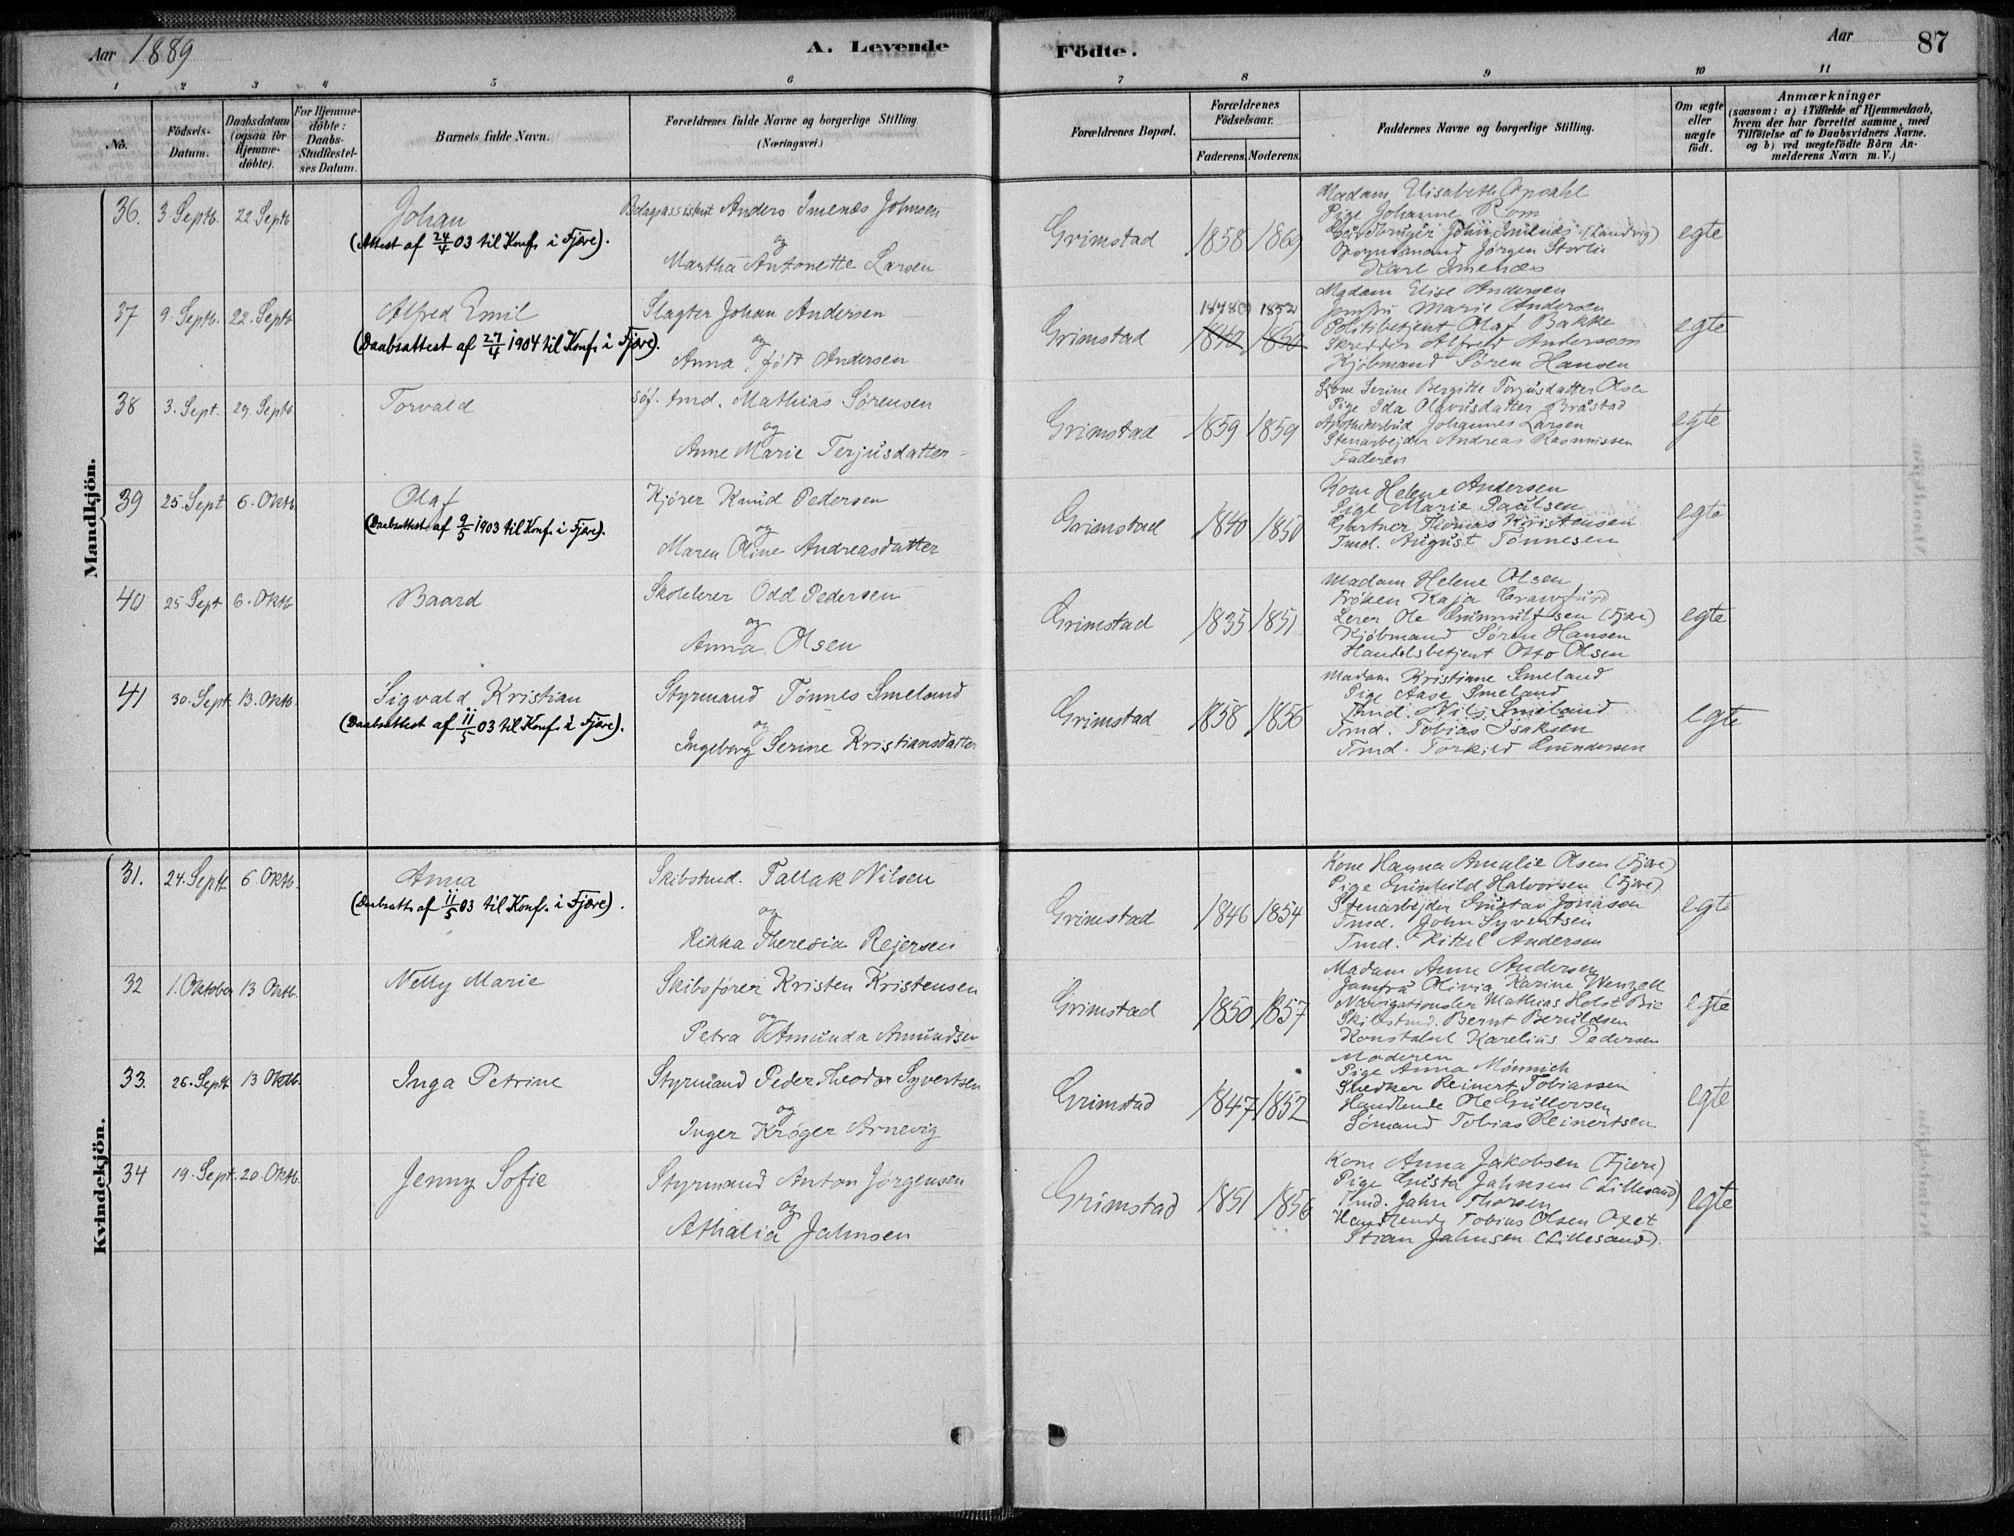 Aar 1889
A. Levende
Fødte.
Aar
87
1 2 3 4 5 6 7 8 9 10 11
No.
Fødsels-
Datum.
Daabsdatum
(ogsaa for
Hjemme-
døbte).
For Hjemme-
døbte:
Daabs-
Stadfæstel-
ses Datum.
Barnets fulde Navn.
Forældrenes fulde Navne og borgerlige Stilling
(Næringsvei.)
Forældrenes Bopæl.
Forældrenes
Fødselsaar.
Faderens. Moderens.
Faddernes Navne og borgerlige Stilling.
Om ægte
eller
uægte
født.
Anmærkninger
(saasom: a) i Tilfælde af Hjemmedaab,
hvem der har forrettet samme, med
Tilføielse af to Daabsvidners Navne.
og b) ved uægtefødte Børn An-
melderens Navn m. V.)
Mandkjön.
36. 3 Septb. 22 Septb
Johan
(Attest af 24/4 03 til Konf. i Fjære).
Anders Imenæs Johnsen
og
Martha Antonette Larsen
Grimstad 1858 1869
Madam Elisabeth
Pige Johanne Rom
Gårdbruger John Imenæs (Landvig)
Jørgen Storlie
Karl Imenæs
egte
37 9. Septb. 22. Septb
Alfred Emil
(Daabsattest af 27/4 1904 til Konf. i Fjære).
Slagter Johan Andersen
og
Anna født Andersen
Grimstad 1848 1852
1840 1850
Madam Elise Andersen
Jomfru Marie Andersen
Politibetjent Olaf Bakke
Skredder Alfred Anderssen
Kjøbmand Søren Hansen
egte
38 3. Sept. 29. Septb
Torvald
Søf. tmd. Mathias Sørensen
og
Anne Marie Terjusdatter
Grimstad 1859 1859
Kone Serine Bergitte Torjusdatter Olsen
Pige Ida Olavusdatter Bråstad
Apothekerbud Johannes Larsen
Stenarbejder Andreas Rasmussen
Faderen
egte
39 25. Sept 6. Oktb.
Olaf
(Daabsattest af 9/5 1903 til Konf. i Fjære).
Kjører Knud Pedersen
og
Maren Oline Andreasdatter
Grimstad 1840 1850
Kone Helene Andersen
Pige Marie Paulsen
Gartner Thomas Kristensen
Tmd. August Tønnesen
egte
40 25 Sept 6. Oktb
Baard
Skolelerer Odd Pedersen
og
Anna Olsen
Grimstad 1835 1851
Madam Helene Olsen
Frøken Kaja Crawfurd
Lerer Ole Gunnulfsen (Fjære)
Kjøbmand Søren Hansen
Handelsbetjent Otto Olsen
egte
41 30. Sept. 13. Oktb.
Sigvald Kristian
(Daabsattest af 11/5 03 til Konf. i Fjære).
Styrmand Tønnes Smeland
og
Ingeborg Serine Kristiansdatter
Grimstad 1858 1856
Madam Kristiane Smeland
Pige Aase Smeland
Tmd. Nils Smeland
Tmd. Tobias Isaksen
Tmd. Torkild Gundersen
egte
Kvindekjön.
31. 24. Septb. 6 Oktb.
Anna
(Daabsatt. af 11/5 03 til Konf. i Fjære).
Skibstmd. Tallak Nilsen
og
Rikka Theresia Rejersen
Grimstad 1846 1854
Kone Hanna Amalie Olsen (Fjære)
Pige Gunhild Halvorsen (Fjære)
Stenarbejder Gustav Jonasen
Tmd. John Syvertsen
Tmd. Kittil Andersen
egte
32 1. Oktober 13 Oktb.
Nelly Marie
Skibsfører Kristen Kristensen
og
Petra Amunda Amundsen
Grimstad 1850 1857
Madam Anne Andersen
Jomfru Olivia Karine Wenzell
Navigationsler Mathias Holst Bie
Skibstmd. Bernt Beruldsen
Konstabel Karelius Pedersen
egte
33. 26. Septb. 13 Oktb.
Inga Petrine
Styrmand Peder Theodor Syvertsen
og
Inger Krøger Arnevig
Grimstad 1847 1852
Moderen
Pige Anna Mønnich
Snedker Reinert Tobiassen
Handlende Ole Gullovsen
Sømand Tobias Reinertsen
egte
34 19. Sept. 20 Oktb.
Jenny Sofie
Styrmand Anton Jørgensen
og
Athalia Jahnsen
Grimstad 1851 1856
Kone Anna Jakobsen (Fjære)
Pige Gusta Jahnsen (Lillesand)
Tmd. Jahn Thorsen
Handlende Tobias Olsen Oxet
Stian Jahnsen (Lillesand).
egte